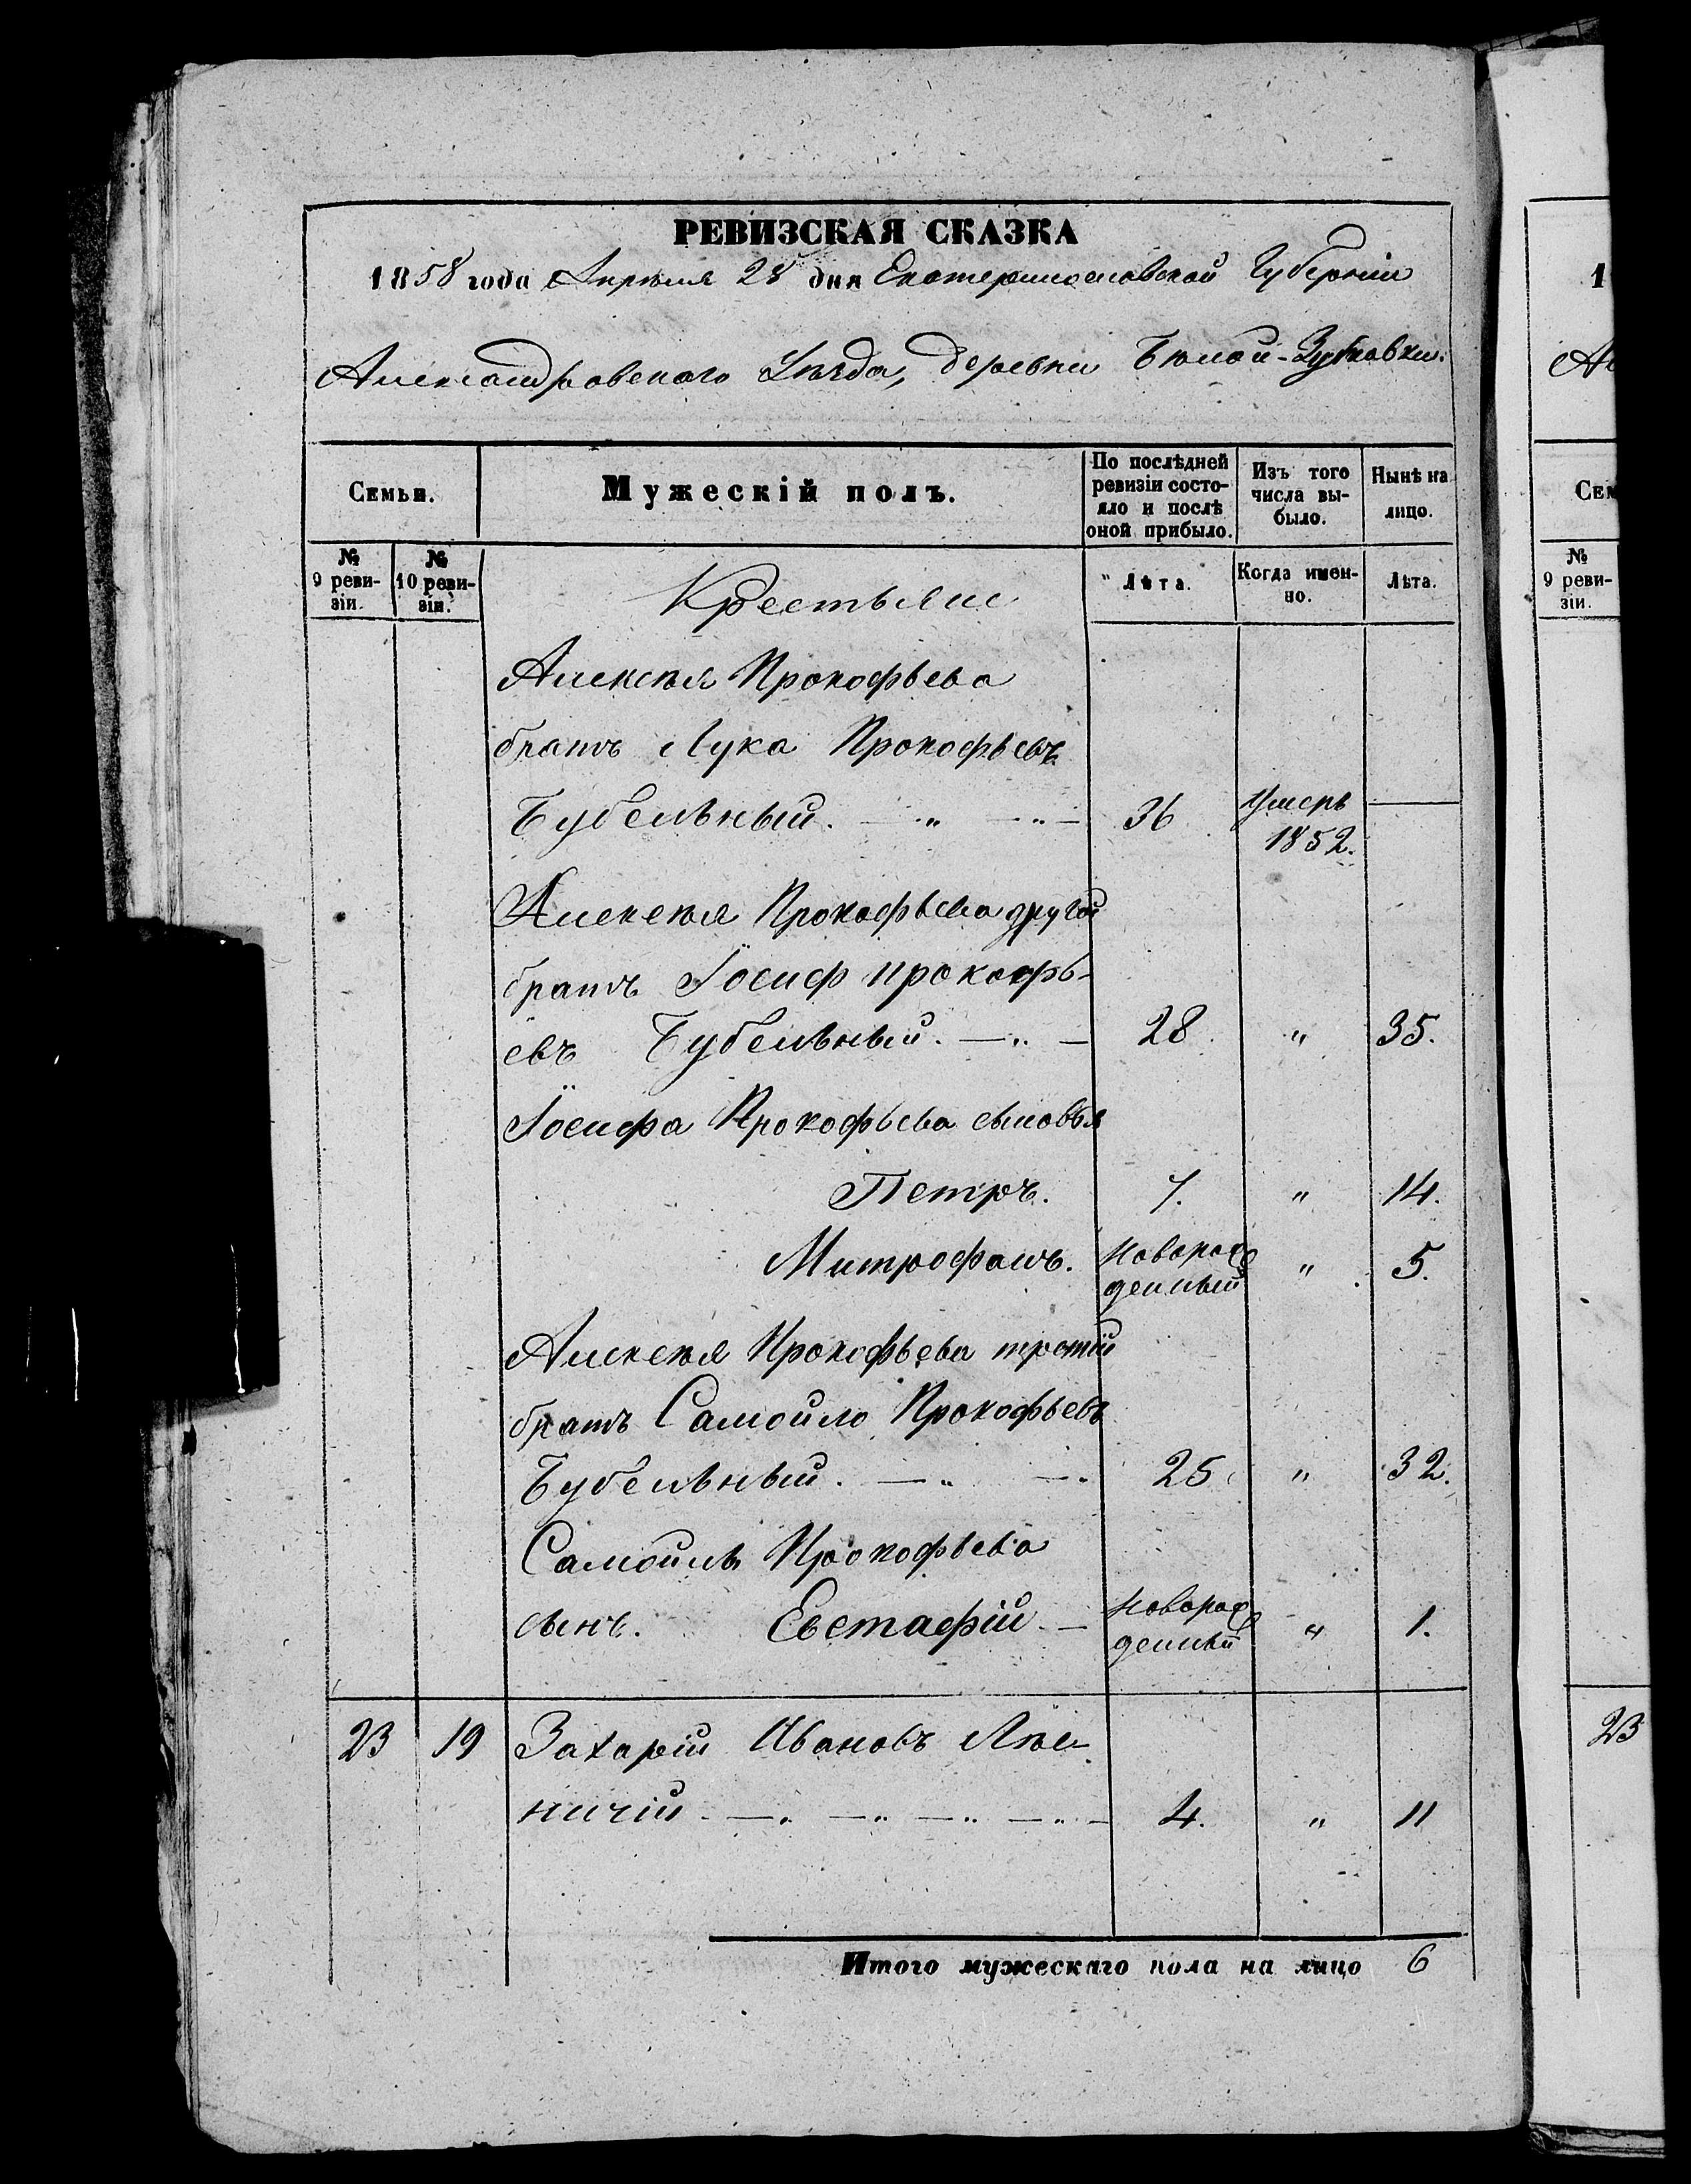 РЕВИЗСКАЯ СКАЗКА
1858 года Апрѣля 28 дня Екатеринославской Губерніи
Александровскаго Уѣзда, деревни Бѣлой-
Семьи.
Мужескій полъ.
По послѣдней ревизіи состояло и послѣ оной прибыло.
Изъ того числа выбыло.
Нынѣ на лицо.
№ 9 ревизіи.
№ 10 ревизіи.
Крестьяне
Лѣта.
Когда именно.
Лѣта.
Алексѣя Прокофьева
братъ Лука Прокофьевъ
Бубельный. 36 Умеръ 1852. —
Алексѣя Прокофьева другой
братъ Іосиф прокофь-
евъ Бубельный. 28 " 35.
Іосифа Прокофьева сыновья
Петръ. 7. " 14.
Митрофанъ. Новорожденный " 5.
Алексѣя Прокофьева третій
братъ Самойло Прокофьевъ
Бубельный. 25 " 32.
Самойлы Прокофьева
сынъ. Евстафій. Новорожденный " 1.
23 19 Захарій Ивановъ Лѣс-
ничій 4. " 11
Итого мужескаго пола на лицо 6
1
Сем
№ 9 ревизіи.
23